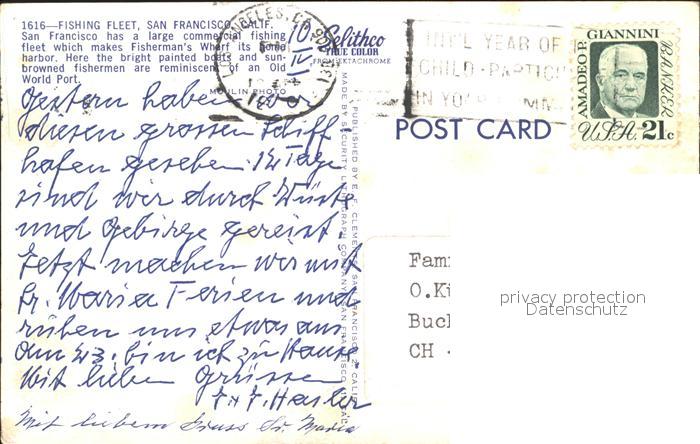 1616—FISHING FLEET, SAN FRANCISCO, CALIF.
San Francisco has a large commercial fishing
fleet which makes Fisherman's Wharf its home
harbor. Here the bright painted boats and sun-
browned fishermen are reminiscent of an Old
World Port.
MOULIN PHOTO
Selithco
TRUE COLOR
FROM EKTACHROME
Gestern haben wir
diesen grossen Schiff
hafen gesehen. 12 Tage
sind wir durch Wüste
und Gebirge gereist.
Jetzt machen wir mit
Sr. Maria Ferien und
ruhen uns etwas aus
Am 23. bin ich zu Hause.
Mit lieben Grüssen
Mit liebem Gruss Sr. Maria
PUBLISHED BY E. F. CLEMENTS, SAN FRANCISCO 2, CALIF.
MADE BY SECURITY LITHOGRAPH COMPANY, SAN FRANCISCO
INT'L YEAR OF
CHILD-PARTICI
IN YOUR
AMADEO P. GIANNINI
BANKER
U.S.A. 21c
POST CARD
Fam
O.K
Buc
CH
privacy protection
Datenschutz